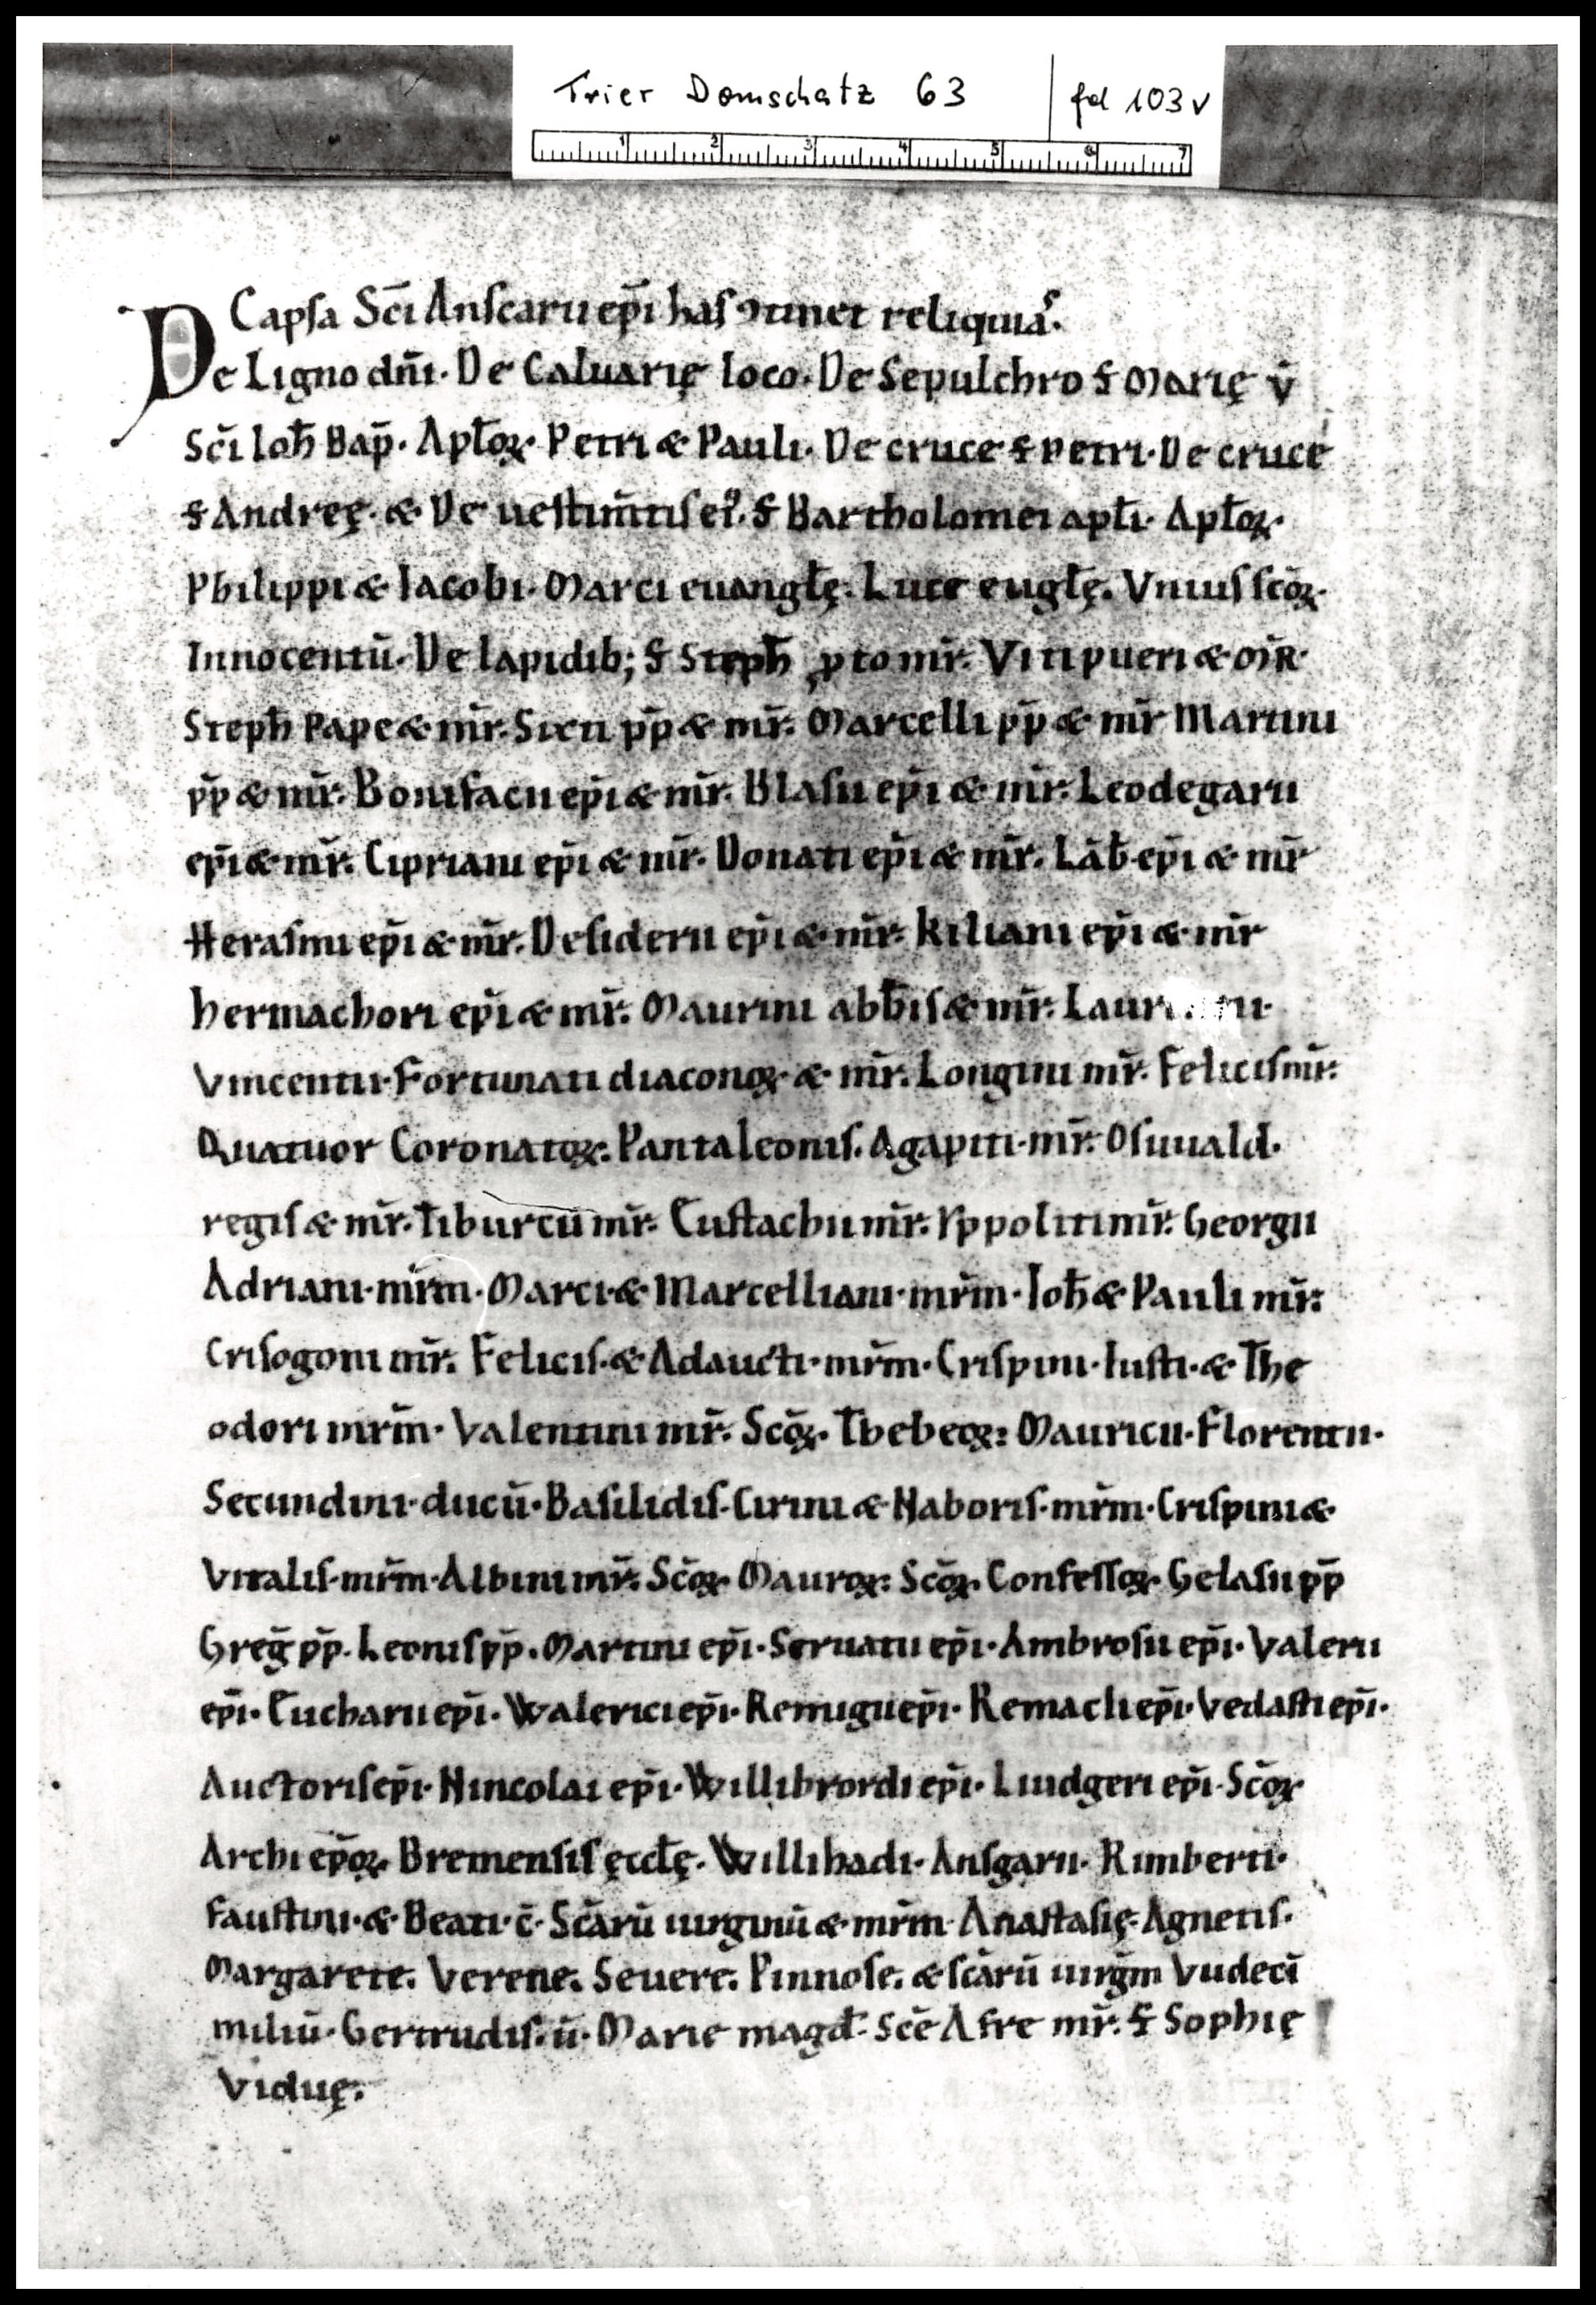 Trier Domschatz 63 fol 103v
1 2 3 4 5 6 7
Capſa Sc̄i Anſcarii ep̄i haſ ꝯtinet reliquiaſ.
De Ligno dn̄i. De Caluarię loco. De Sepulchro S Marię v̄
Sc̄i Ioh̄ Bap̄. Apl̄oꝝ. Petri & Pauli. De cruce S Petri. De cruce
S Andreę. & De ueſtim̄tiſ ei. S Bartholomei apl̄i. Apl̄oꝝ.
Philippi & Iacobi. Marci euangl̄ę. Luce eugl̄ę. Vniuſ ſc̄oꝝ.
Innocentū. De lapidib; S Steph̄ ꝓtomr̄. Viti pueri & M̄R.
Steph̄ Pape & mr̄. Sixti pp̄ & mr̄. Marcelli pp̄ & mr̄ Martini
pp̄ & mr̄. Bonifacii ep̄i & mr̄. Blaſii ep̄i & mr̄. Leodegarii
ep̄i & mr̄. Cipriani ep̄i & mr̄. Donati ep̄i & mr̄. Lāb̄ ep̄i & mr̄
Heraſmi ep̄i & mr̄. Deſiderii ep̄i & mr̄. Kiliani ep̄i & mr̄
hermachori ep̄i & mr̄. Maurini abb̄iſ & mr̄.
Vincentii. Fortunati diaconoꝝ & mr̄. Longini mr̄. Feliciſ mr̄.
Quatuor Coronatoꝝ. Pantaleoniſ. Agapiti. mr̄. Oſuuald.
regiſ & mr̄. Tiburcii mr̄. Euſtachii mr̄. Yppoliti mr̄. Georgii
Adriani. mr̄m. Marci. & Marcelliani. mr̄m. Ioh̄ & Pauli mr̄.
Criſogoni mr̄. Feliciſ. & Adaucti. mr̄m. Criſpini. Iuſti. & The
odori mr̄m. Valentini mr̄. Sc̄oꝝ. Thebeoꝝ. Mauricii. Florentii.
Secundini. ducū. Baſilidiſ. Cirini & Naboriſ. mr̄m. Criſpini &
Vitaliſ. mr̄m. Albini mr̄. Sc̄oꝝ Mauroꝝ. Sc̄oꝝ. Confeſſoꝝ. Gelaſii pp̄
Greḡ pp̄. Leoniſ pp̄. Martini ep̄i. Seruatii ep̄i. Ambroſii ep̄i. Valerii
ep̄i. Eucharii ep̄i. Walerici ep̄i. Remigii ep̄i. Remacli ep̄i. Vedaſti ep̄i.
Auctoriſ ep̄i. Nincolai ep̄i. Willibrordi ep̄i. Liudgeri ep̄i. Sc̄oꝝ
Archi ep̄oꝝ. Bremenſiſ ęccl̄ę. Willihadi. Anſgarii. Rimberti.
Fauſtini. & Beati. c̄. Sc̄arū uirginū & mr̄m. Anaſtaſię. Agnetiſ.
Margarete. Verene. Seuere. Pinnoſe. & ſc̄arū uirḡm Vndecī
miliū. Gertrudiſ. ū. Marie magd̄. Sc̄e Afre mr̄. S Sophię
Viduę.